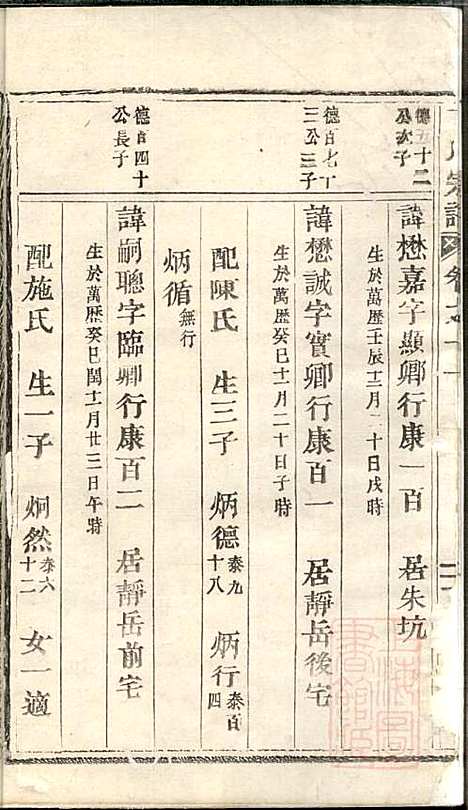 德五十二
公次子
諱懋嘉字顯卿行康一百 居朱坑
生於萬歷壬辰十二月二十日戌時
德百七十
三公三子
諱懋誠字實卿行康百一 居靜岳後宅
生於萬歷癸巳十一月二十日子時
配陳氏 生三子 炳德泰九十八 炳行泰百四
炳循無行
德百四十
公長子
諱嗣聰字臨卿行康百二 居靜岳前宅
生於萬歷癸巳閏十一月廿三日午時
配施氏 生一子 炯然泰六十二 女一適